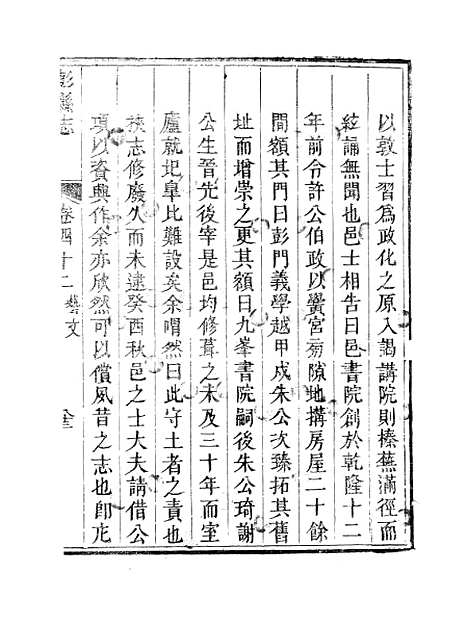 以敦士習為政化之原入謁講院則榛蕪滿徑而
絃誦無聞也邑士相告曰邑書院創於乾隆十二
年前令許公伯政以黌宮旁隙地搆房屋二十餘
間額其門曰彭門義學越甲戌朱公次臻拓其舊
址而增崇之更其額曰九峯書院嗣後朱公琦謝
公生晉先後宰是邑均修葺之未及三十年而室
廬就圮皐比難設矣余喟然曰此守土者之責也
挾志修廢久而未逮癸酉秋邑之士大夫請借公
項以資興作余亦欣然可以償夙昔之志也卽庀
彭縣志
卷四十二 藝文